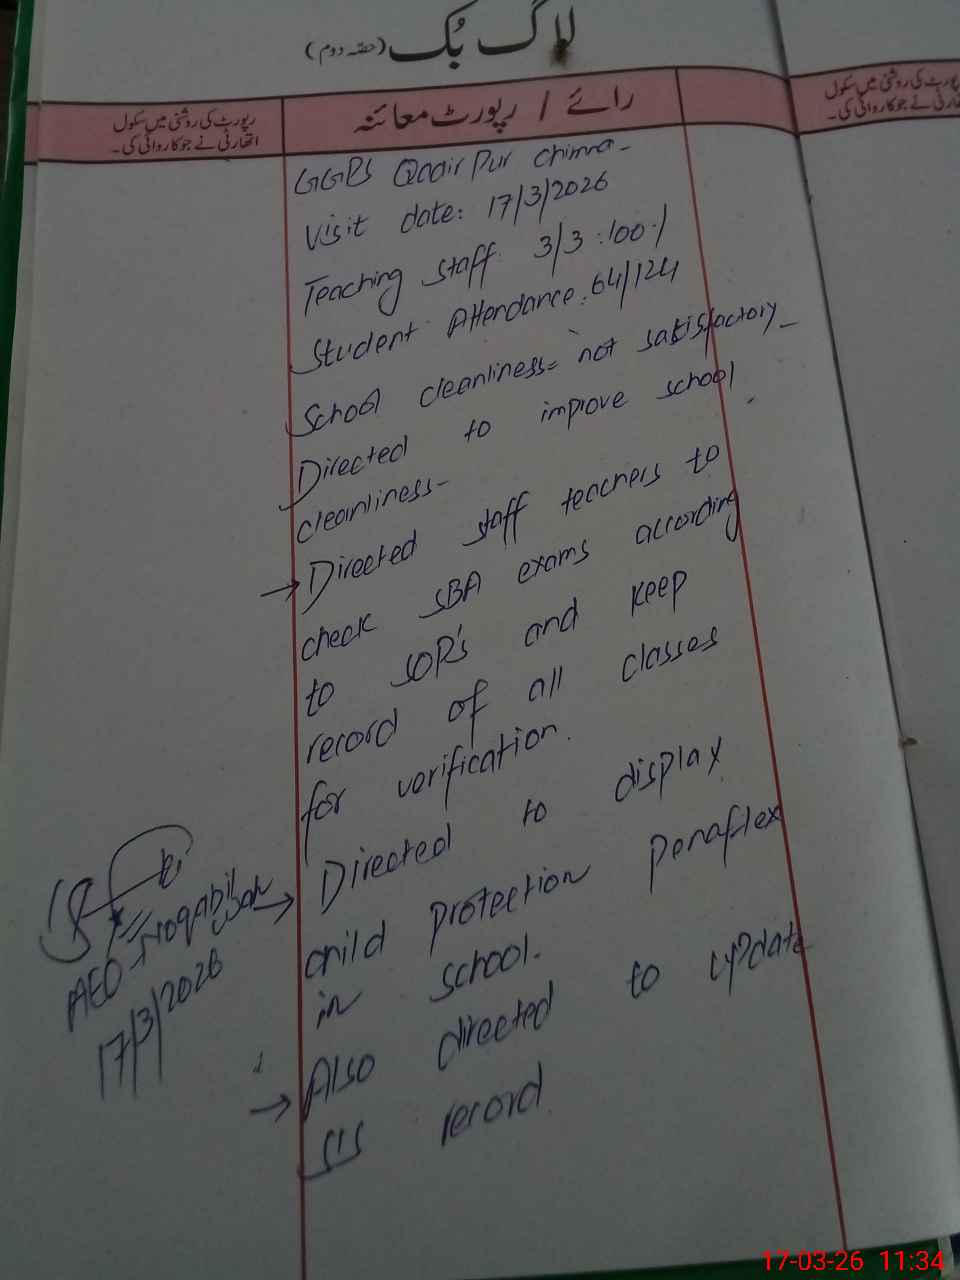 لاگ بُک (حصّہ دوم)
رپورٹ کی روشنی میں سکول
اتھارٹی نے جو کاروائی کی۔
رائے / رپورٹ معائنہ
رپورٹ کی روشنی میں سکول
اتھارٹی نے جو کاروائی کی۔
GGPS Qadir Pur Chima-
Visit date: 17/3/2026
Teaching staff: 3/3 :100·/
Student Attendance: 64/124
School cleanliness= not satisfactory-
Directed to improve school
cleanliness-
→ Directed staff teachers to
check SBA exams according
to SOP's and keep
record of all classes
for verification.
→ Directed to display
child protection penaflex
in school.
→ Also directed to update
SIS record
AEO
17/3/2026
17-03-26 11:34